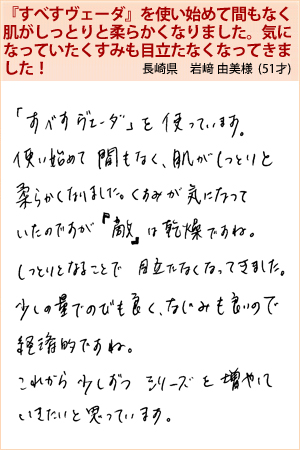 『すべすヴェーダ』を使い始めて間もなく
肌がしっとりと柔らかくなりました。気に
なっていたくすみも目立たなくなってきま
した！
長崎県　岩﨑 由美様（51才）
「すべすヴェーダ」を使っています。
使い始めて間もなく、肌がしっとりと
柔らかくなりました。くすみが気になって
いたのですが『敵』は乾燥ですね。
しっとりとなることで目立たなくなってきました。
少しの量でのびも良く、なじみも良いので
経済的ですね。
これから少しずつシリーズを増やして
いきたいと思っています。